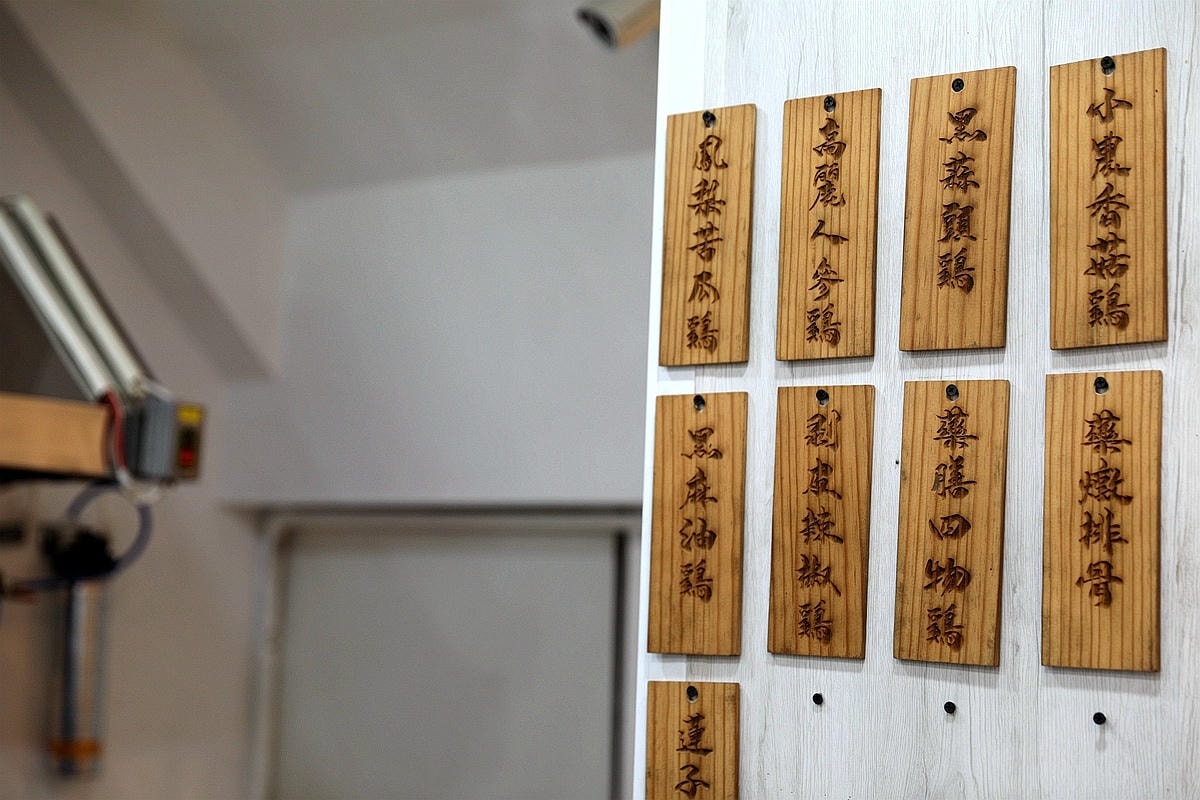 小農香菇鷄
黑蒜頭鷄
高麗人參鷄
鳳梨苦瓜鷄
藥燉排骨
藥膳四物鷄
剝皮辣椒鷄
黑麻油鷄
蓮子